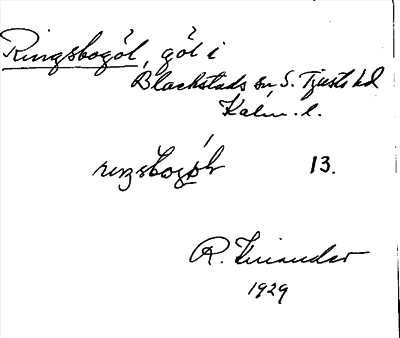 Ringsbogöl, göl i
Blackstads sn S. Tjusts hd
Kalm. l.
13.
R.
1929